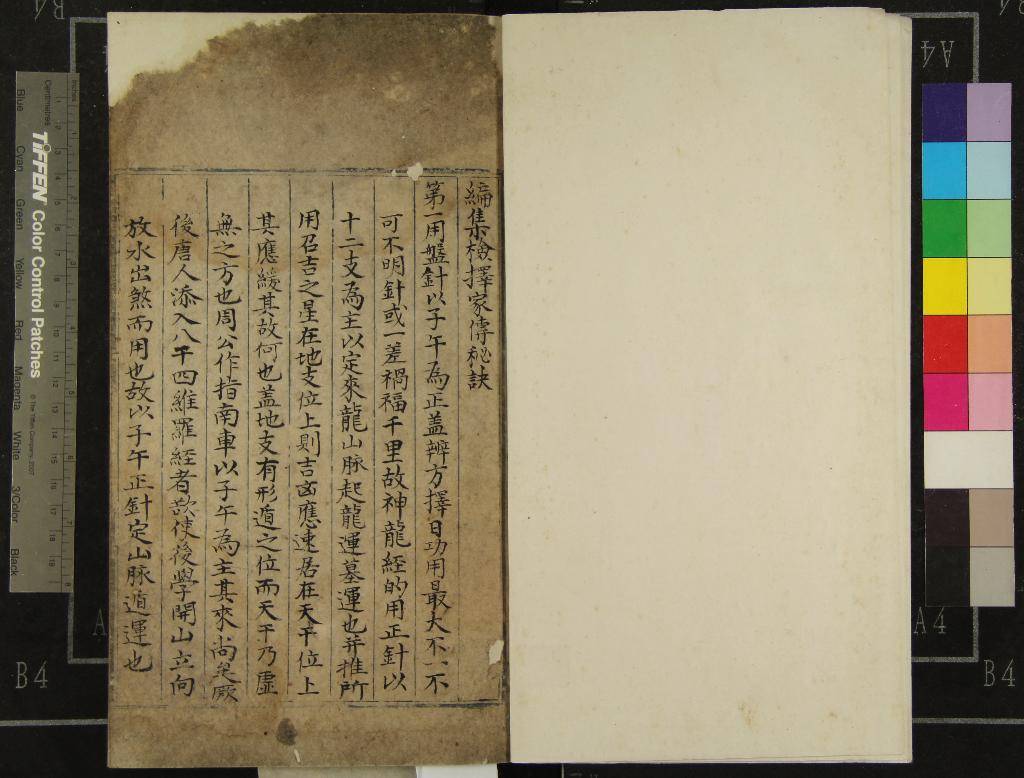 編集檢擇家傳秘訣
第一用盤針以子午為正盖辨方擇日功用最大不一不
可不明針或一差禍福千里故神龍經的用正針以
十二支為主以定來龍山脉起龍運墓運也并推所
用召吉之星在地支位上則吉凶應速居在天干位上
其應緩其故何也盖地支有形遁之位而天干乃虛
無之方也周公作指南車以子午為主其來尚矣厥
後唐人添入八干四維羅経者欲使後學開山立向
放水出煞而用也故以子午正針定山脉遁運也
TIFFEN Color Control Patches
© The Tiffen Company, 2007
Centimetres
Inches
Blue
Cyan
Green
Yellow
Red
Magenta
White
3/Color
Black
A4
A4
B4
B4